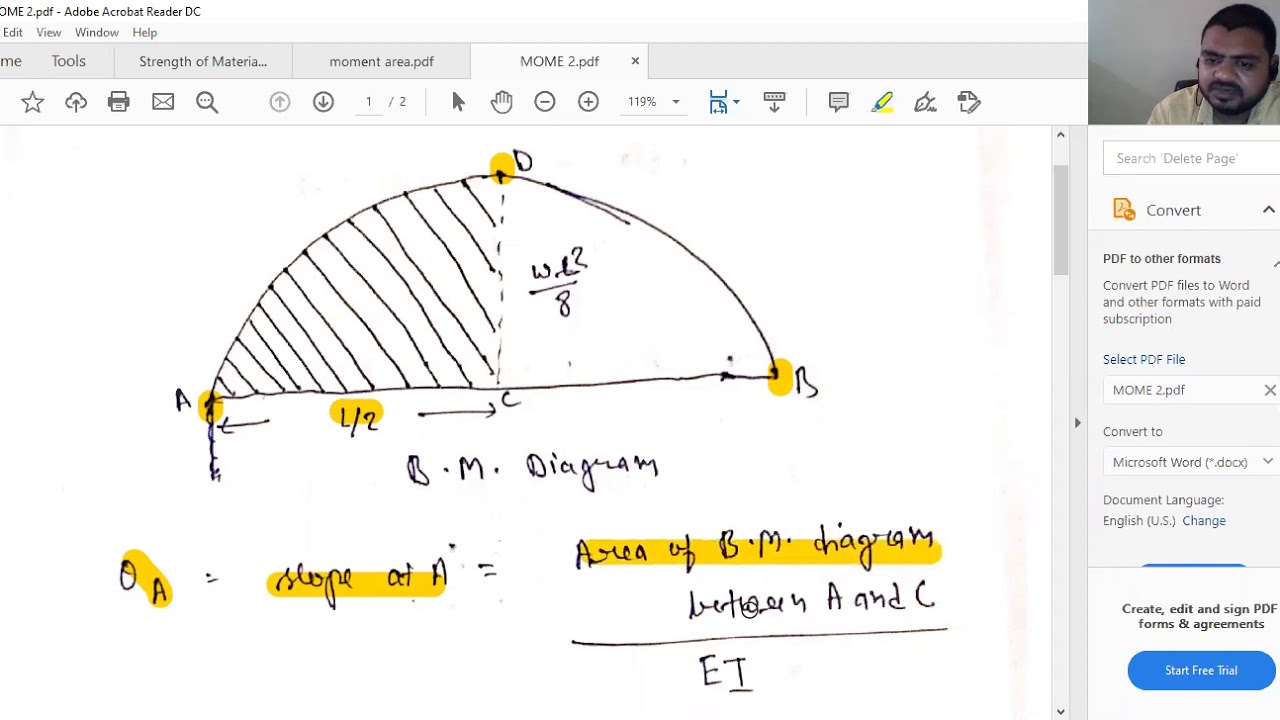 MOME 2.pdf - Adobe Acrobat Reader DC
Edit View Window Help
me Tools Strength of Materia... moment area.pdf MOME 2.pdf ×
1 / 2 119%
D
w.L²
8
A
C
B
L/2
B.M. Diagram
θA = slope at A = Area of B.M. diagram
between A and C
EI
Search 'Delete Page'
Convert
PDF to other formats
Convert PDF files to Word
and other formats with paid
subscription
Select PDF File
MOME 2.pdf
Convert to
Microsoft Word (*.docx)
Document Language:
English (U.S.) Change
Create, edit and sign PDF
forms & agreements
Start Free Trial